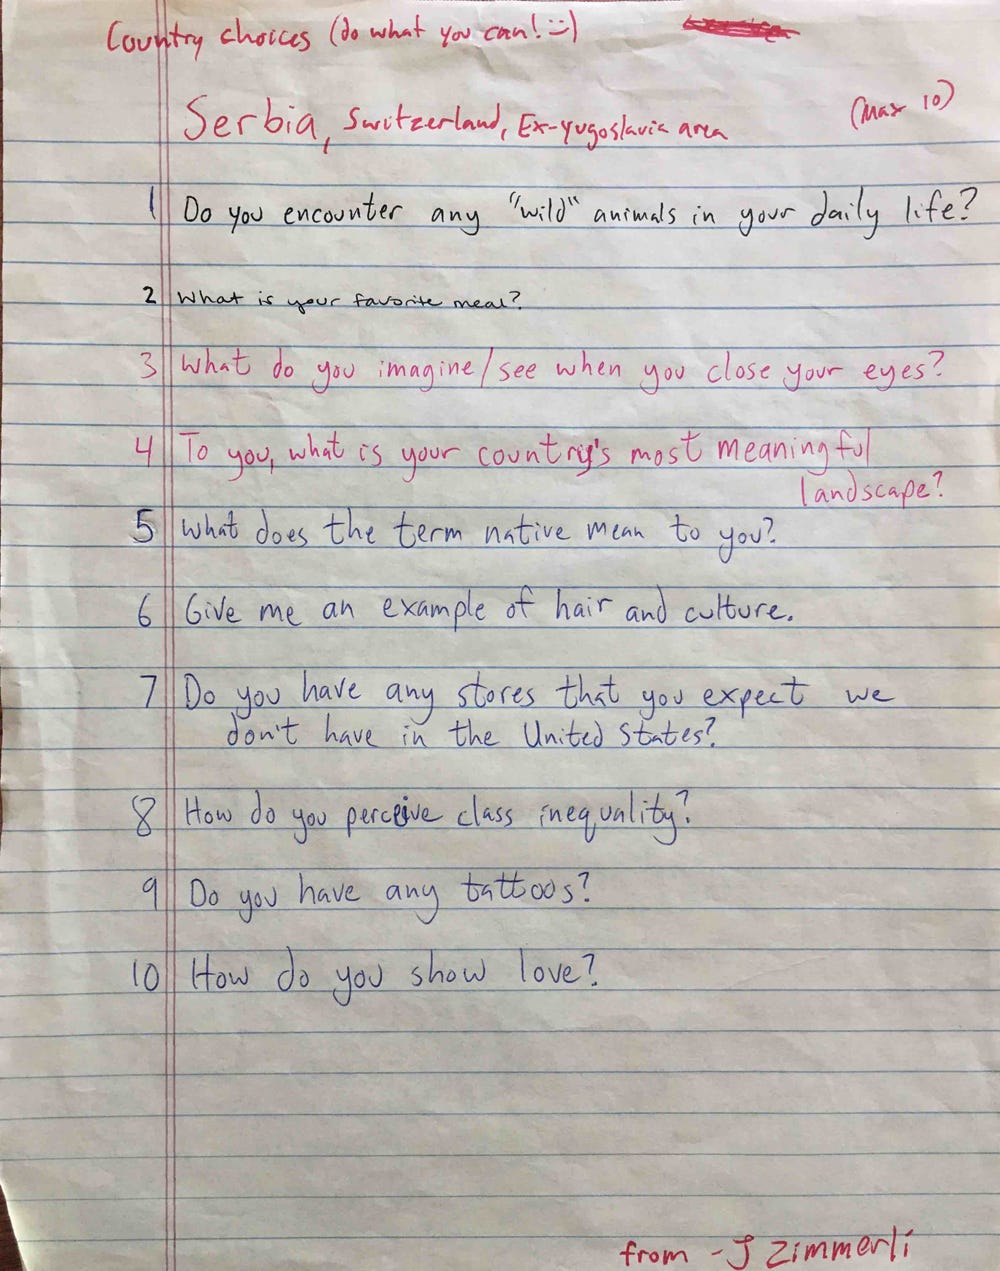 Country choices (do what you can! :))
Serbia, Switzerland, Ex-Yugoslavia area
(Max 10)
1 Do you encounter any "wild" animals in your daily life?
2 What is your favorite meal?
3 What do you imagine/see when you close your eyes?
4 To you, what is your country's most meaningful
landscape?
5 What does the term native mean to you?
6 Give me an example of hair and culture.
7 Do you have any stores that you expect we
don't have in the United States?
8 How do you perceive class inequality?
9 Do you have any tattoos?
10 How do you show love?
from - J Zimmerli